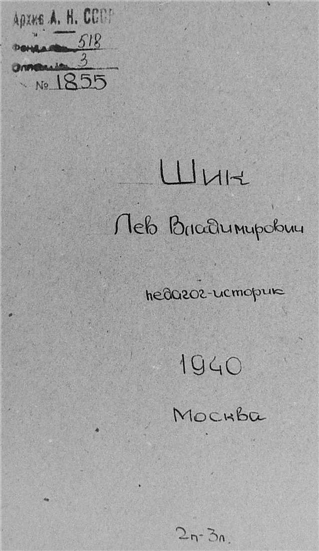 Архив А. Н. СССР
518
3
№ 1855
Шик
Лев Владимирович
педагог-историк
1940
Москва
2п-3л.